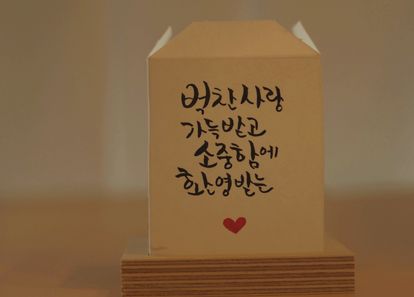 벅찬사랑
가득받고
소중함에
환영받는